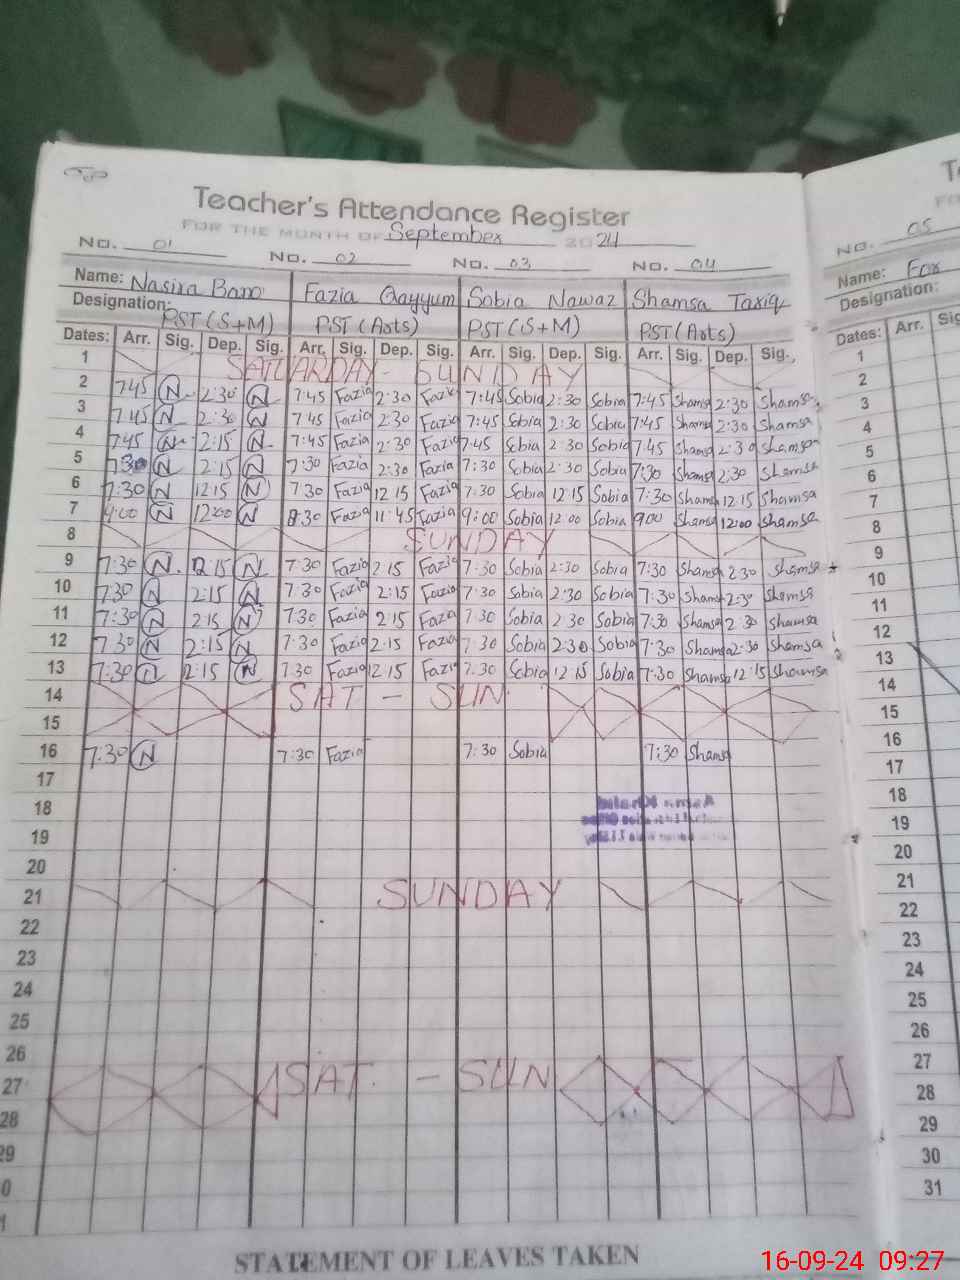 Teacher's Attendance Register
FOR THE MONTH OF September 2024
No. 01 No. 02 No. 03 No. 04
Name: Nasira Bano Fazia Qayyum Sobia Nawaz Shamsa Tariq
Designation: PST (S+M) PST (Arts) PST (S+M) PST (Arts)
Dates: Arr. Sig. Dep. Sig. Arr. Sig. Dep. Sig. Arr. Sig. Dep. Sig. Arr. Sig. Dep. Sig.
1 SATUARDAY - SUNDAY
2 7:45 N 2:30 N 7:45 Fazia 2:30 Fazia 7:45 Sobia 2:30 Sobia 7:45 Shamsa 2:30 Shamsa
3 7:45 N 2:30 N 7:45 Fazia 2:30 Fazia 7:45 Sobia 2:30 Sobia 7:45 Shamsa 2:30 Shamsa
4 7:45 N 2:15 N 7:45 Fazia 2:30 Fazia 7:45 Sobia 2:30 Sobia 7:45 Shamsa 2:30 Shamsa
5 7:30 N 2:15 N 7:30 Fazia 2:30 Fazia 7:30 Sobia 2:30 Sobia 7:30 Shamsa 2:30 Shamsa
6 7:30 N 12:15 N 7:30 Fazia 12:15 Fazia 7:30 Sobia 12:15 Sobia 7:30 Shamsa 12:15 Shamsa
7 9:00 N 12:00 N 8:30 Fazia 11:45 Fazia 9:00 Sobia 12:00 Sobia 9:00 Shamsa 12:00 Shamsa
8 SUNDAY
9 7:30 N 2:15 N 7:30 Fazia 2:15 Fazia 7:30 Sobia 2:30 Sobia 7:30 Shamsa 2:30 Shamsa
10 7:30 N 2:15 N 7:30 Fazia 2:15 Fazia 7:30 Sobia 2:30 Sobia 7:30 Shamsa 2:30 Shamsa
11 7:30 N 2:15 N 7:30 Fazia 2:15 Fazia 7:30 Sobia 2:30 Sobia 7:30 Shamsa 2:30 Shamsa
12 7:30 N 2:15 N 7:30 Fazia 2:15 Fazia 7:30 Sobia 2:30 Sobia 7:30 Shamsa 2:30 Shamsa
13 7:30 N 2:15 N 7:30 Fazia 12:15 Fazia 7:30 Sobia 12:15 Sobia 7:30 Shamsa 12:15 Shamsa
14 SAT - SUN
15
16 7:30 N 7:30 Fazia 7:30 Sobia 7:30 Shamsa
17
18
19
20
21 SUNDAY
22
23
24
25
26
27 SAT - SUN
28
29
0
STATEMENT OF LEAVES TAKEN
No. 05
Name:
Designation:
Dates: Arr.
1
2
3
4
5
6
7
8
9
10
11
12
13
14
15
16
17
18
19
20
21
22
23
24
25
26
27
28
29
30
31
16-09-24 09:27